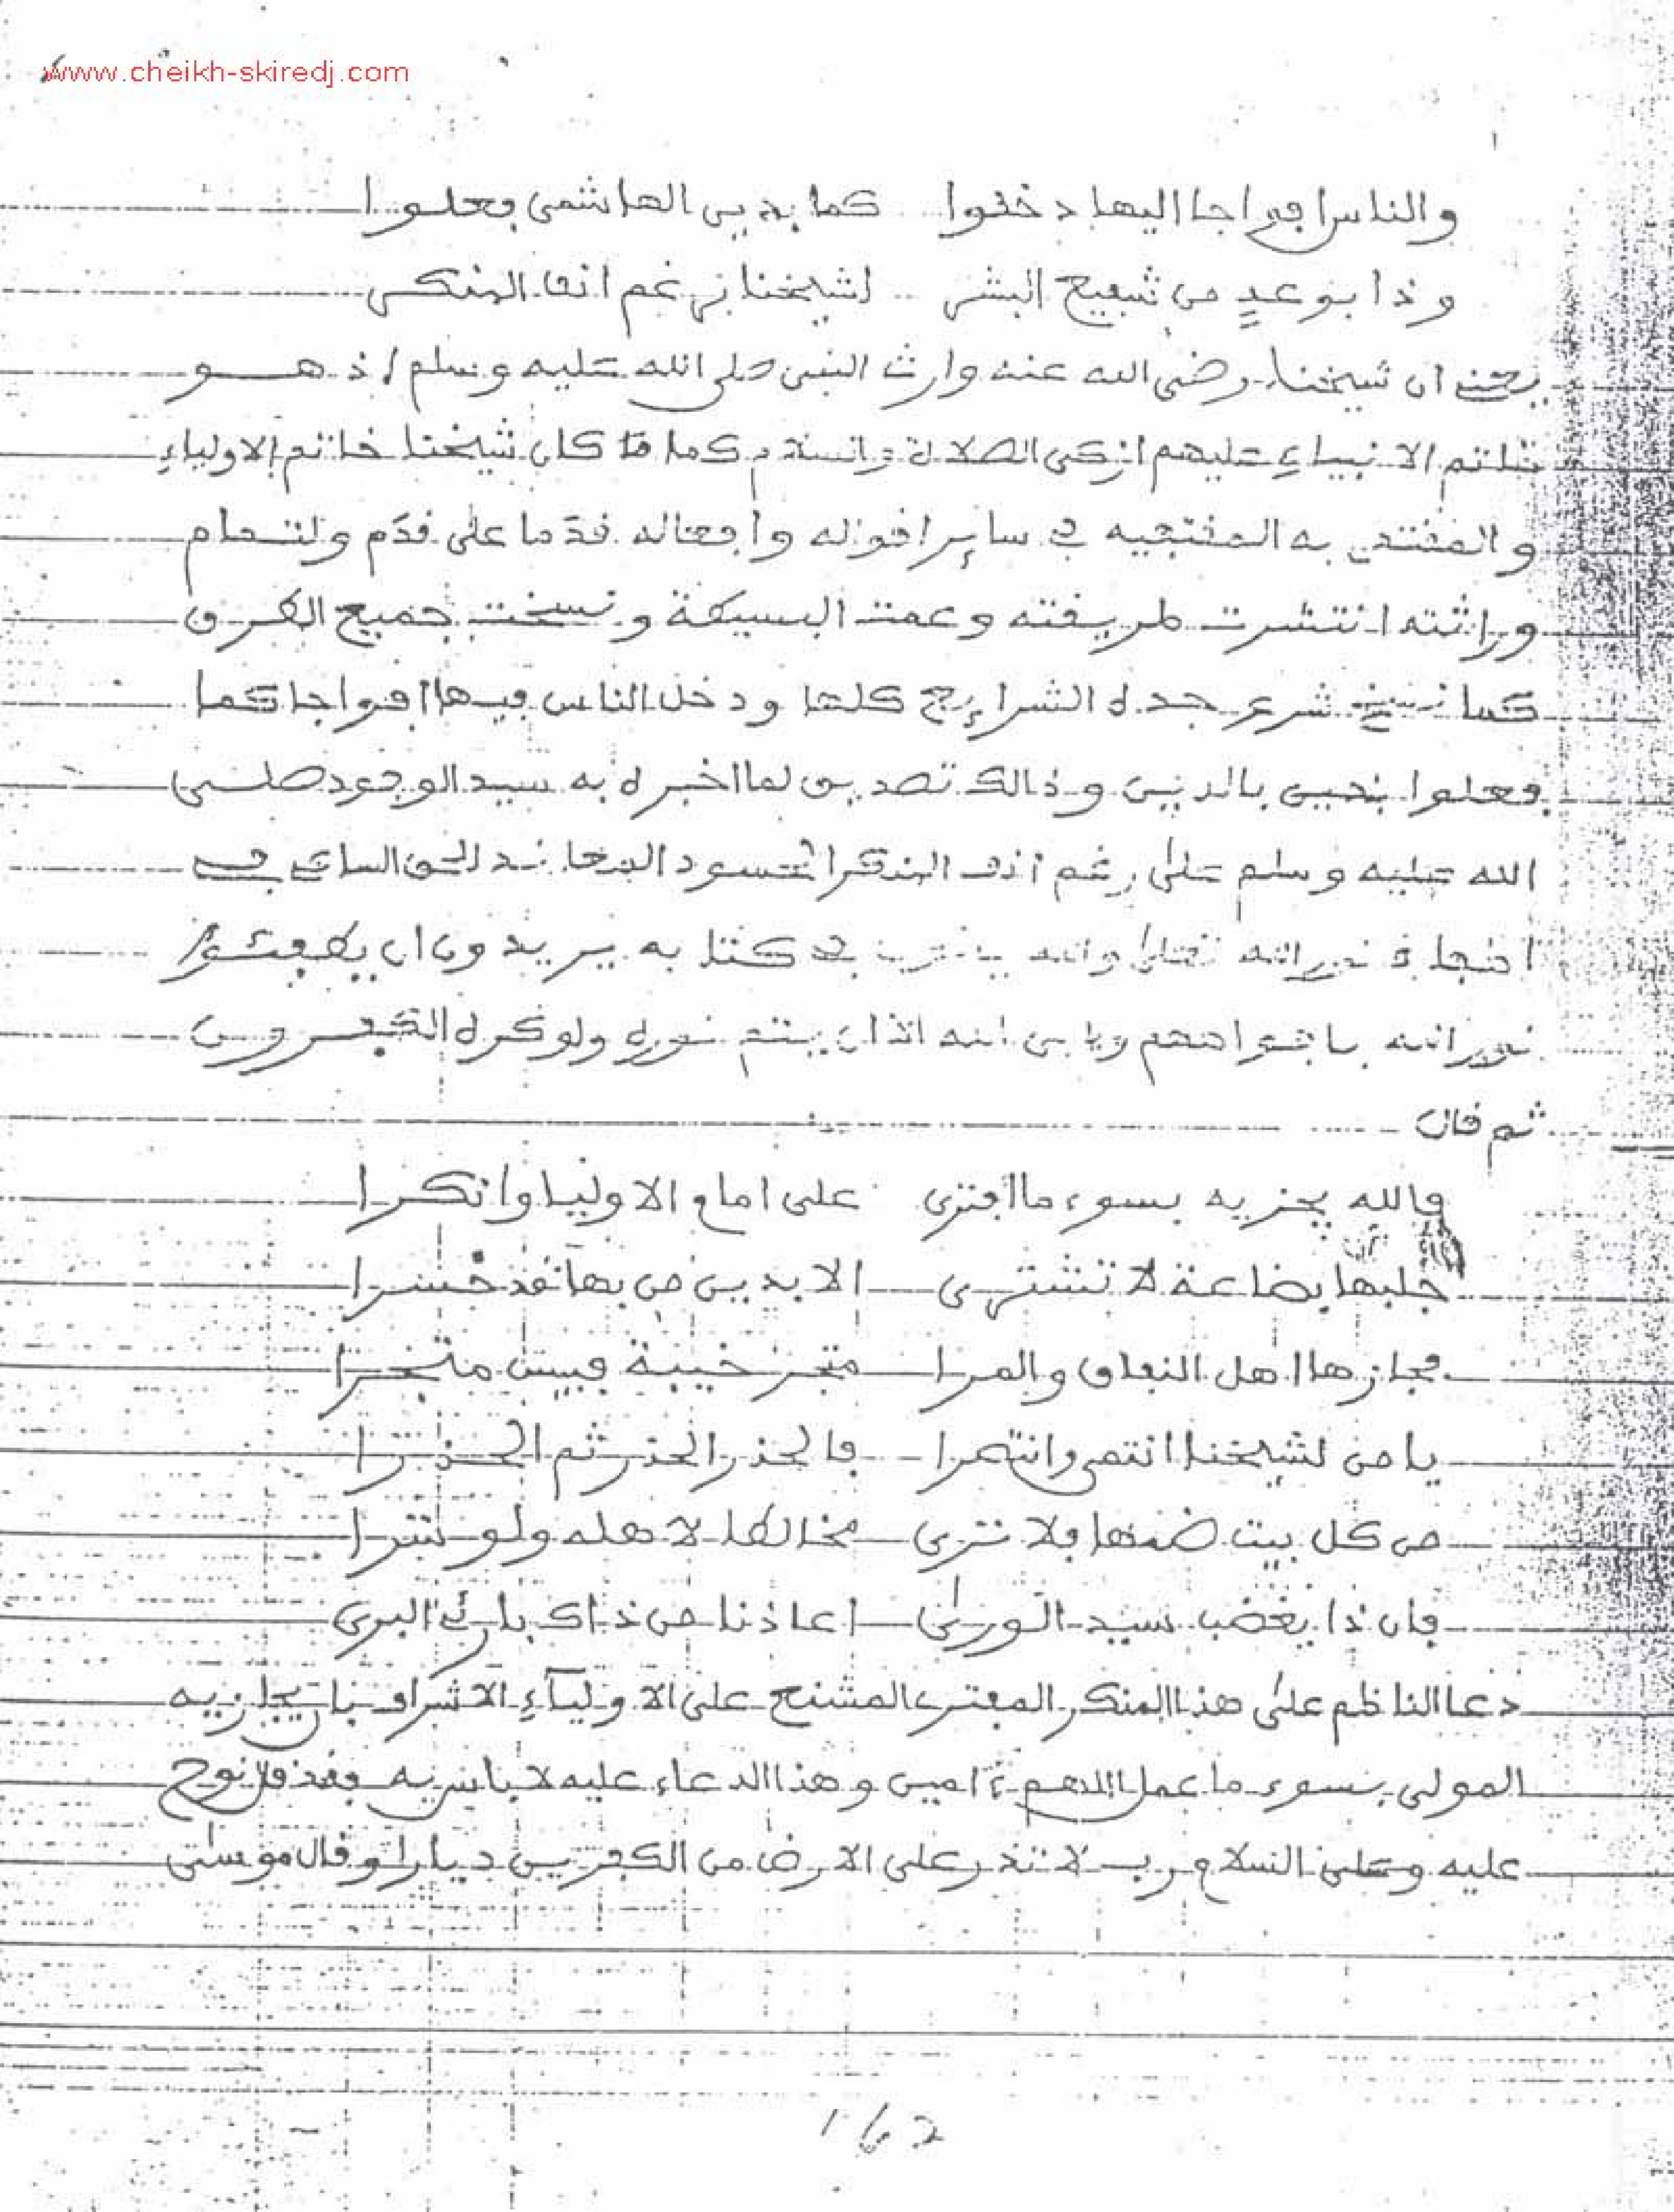 www.cheikh-skiredj.com
والناس افواجا اليها دخلوا كما بدين الهاشمي فعلوا
وذا بوعد من شفيع البشر لشيخنا برغم انف المنكر
يعني ان شيخنا رضي الله عنه وارث النبي صلى الله عليه وسلم اذ هو
خاتم الانبياء عليهم ازكى الصلاة والسلام كما قد كان شيخنا خاتم الاولياء
والمقتدى به المقتفيه في ساير اقواله وافعاله قدما على قدم ولتمام
وراثته انتشرت طريقته وعمت البسيطة ونسخت جميع الطرق
كما نسخ شرع جده الشرايع كلها ودخل الناس فيها افواجا كما
فعلوا بالدين وذالك تصديق لما اخبره به سيد الوجود صلى
الله عليه وسلم على رغم انف المنكر الحسود المعاند للحق الساعي في
اطفاء نور الله تعلى والله يقول في كتابه يريدون ان يطفئوا
نور الله بافواههم ويابى الله الا ان يتم نوره ولو كره الكفرون
ثم قال
والله يجزيه بسوء ما افترى على امام الاوليا وانكرا
جلبها بضاعة لا تشترى الا بدين من بها قد خسرا
فجازها اهل النفاق والمرا متجر خيبة فبيس متجرا
يا من لشيخنا انتمى وانتصرا فالحذر الحذر ثم الحذرا
من كل بيت ضمها فلا ترى مخالطا لاهله ولو ترا
فان ذا يغضب سيد الورى اعاذنا من ذاك بارئ البرى
دعا الناظم على هذا المنكر المفتر المشنع على الاولياء الاشراف بان يجازيه
المولى بسوء ما عمل اللهم ءامين وهذا الدعاء عليه لا باس به فقد قال نوح
عليه وعلى السلام رب لا تذر على الارض من الكفرين ديارا وقال موسى
162